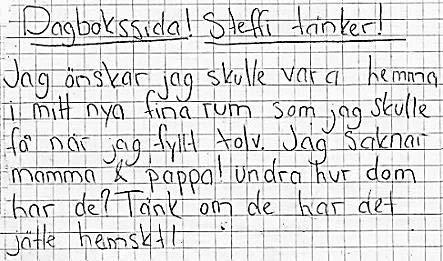 Dagbokssida! Steffi tänker!
Jag önskar jag skulle vara hemma
i mitt nya fina rum som jag skulle
få när jag fyllt tolv. Jag saknar
mamma & pappa! undra hur dom
har de? Tänk om de har det
jätte hemskt!